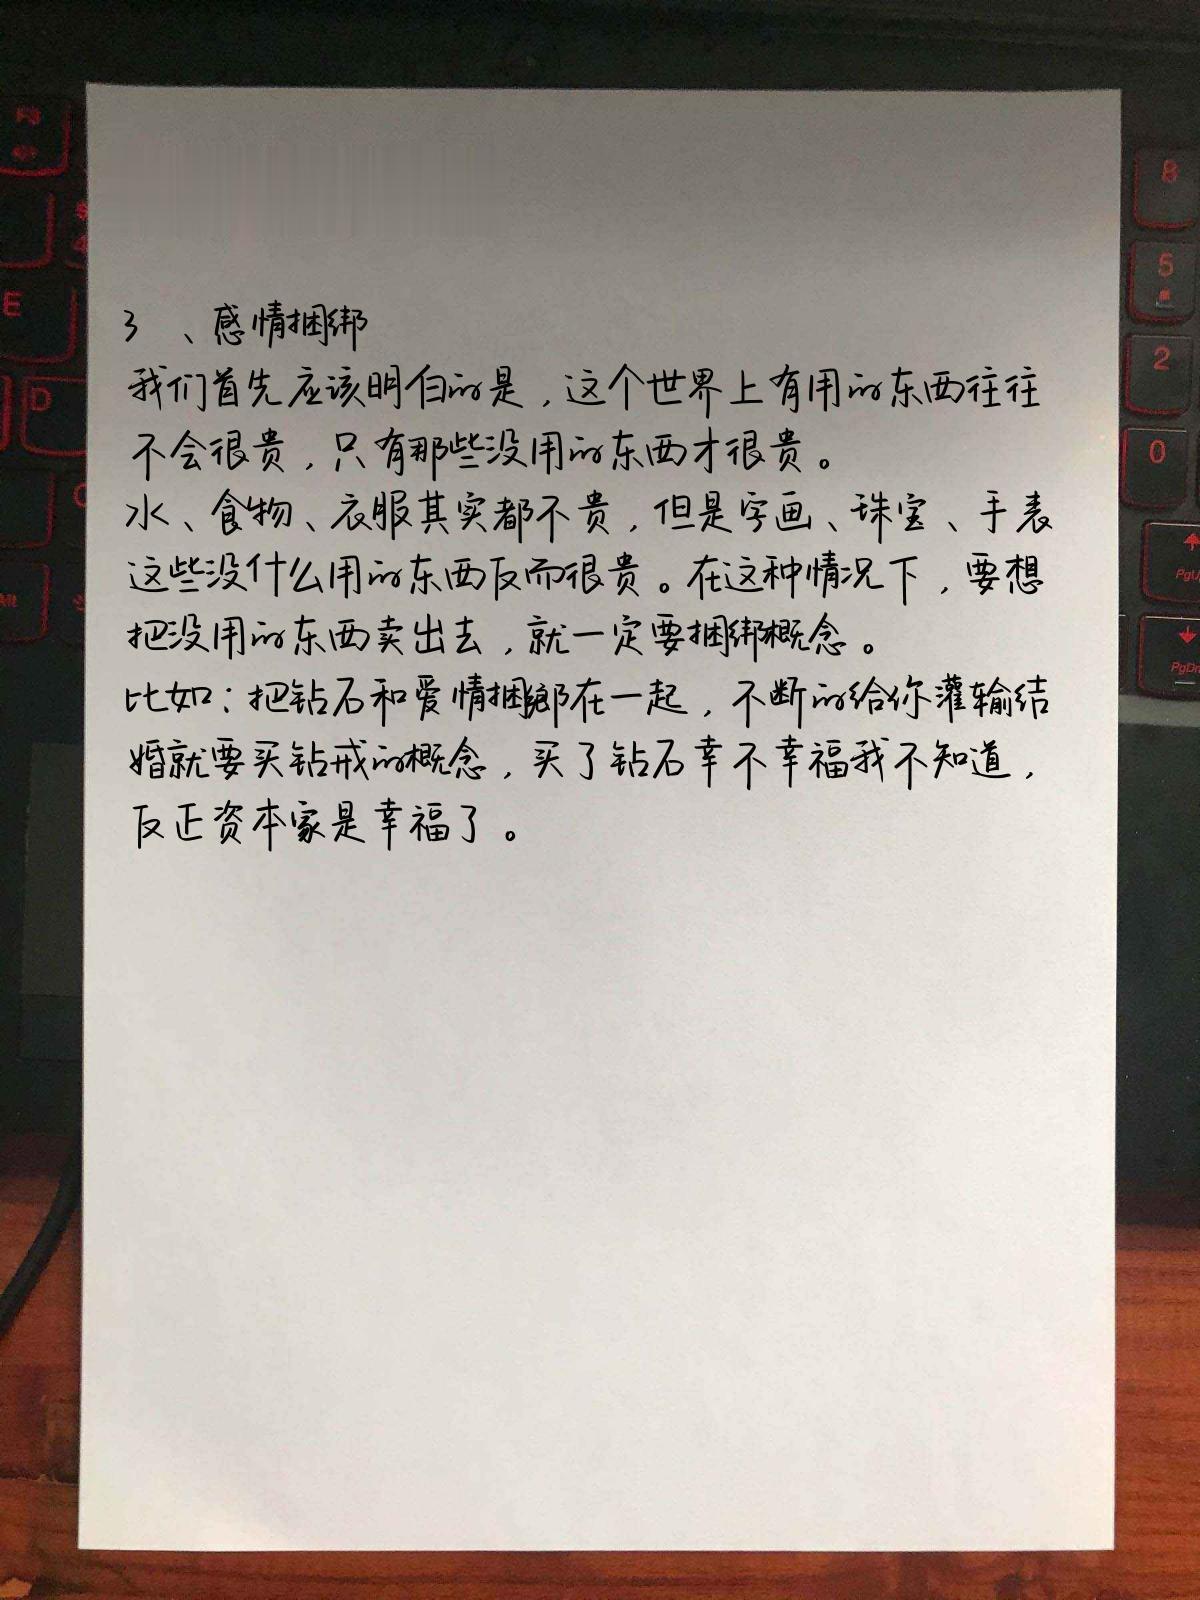 3、感情捆绑
我们首先应该明白的是，这个世界上有用的东西往往
不会很贵，只有那些没用的东西才很贵。
水、食物、衣服其实都不贵，但是字画、珠宝、手表
这些没什么用的东西反而很贵。在这种情况下，要想
把没用的东西卖出去，就一定要捆绑概念。
比如：把钻石和爱情捆在一起，不断的给你灌输结
婚就要买钻戒的概念，买了钻石幸不幸福我不知道，
反正资本家是幸福了。
E
D
8
5
2
0
PgU
PgDn